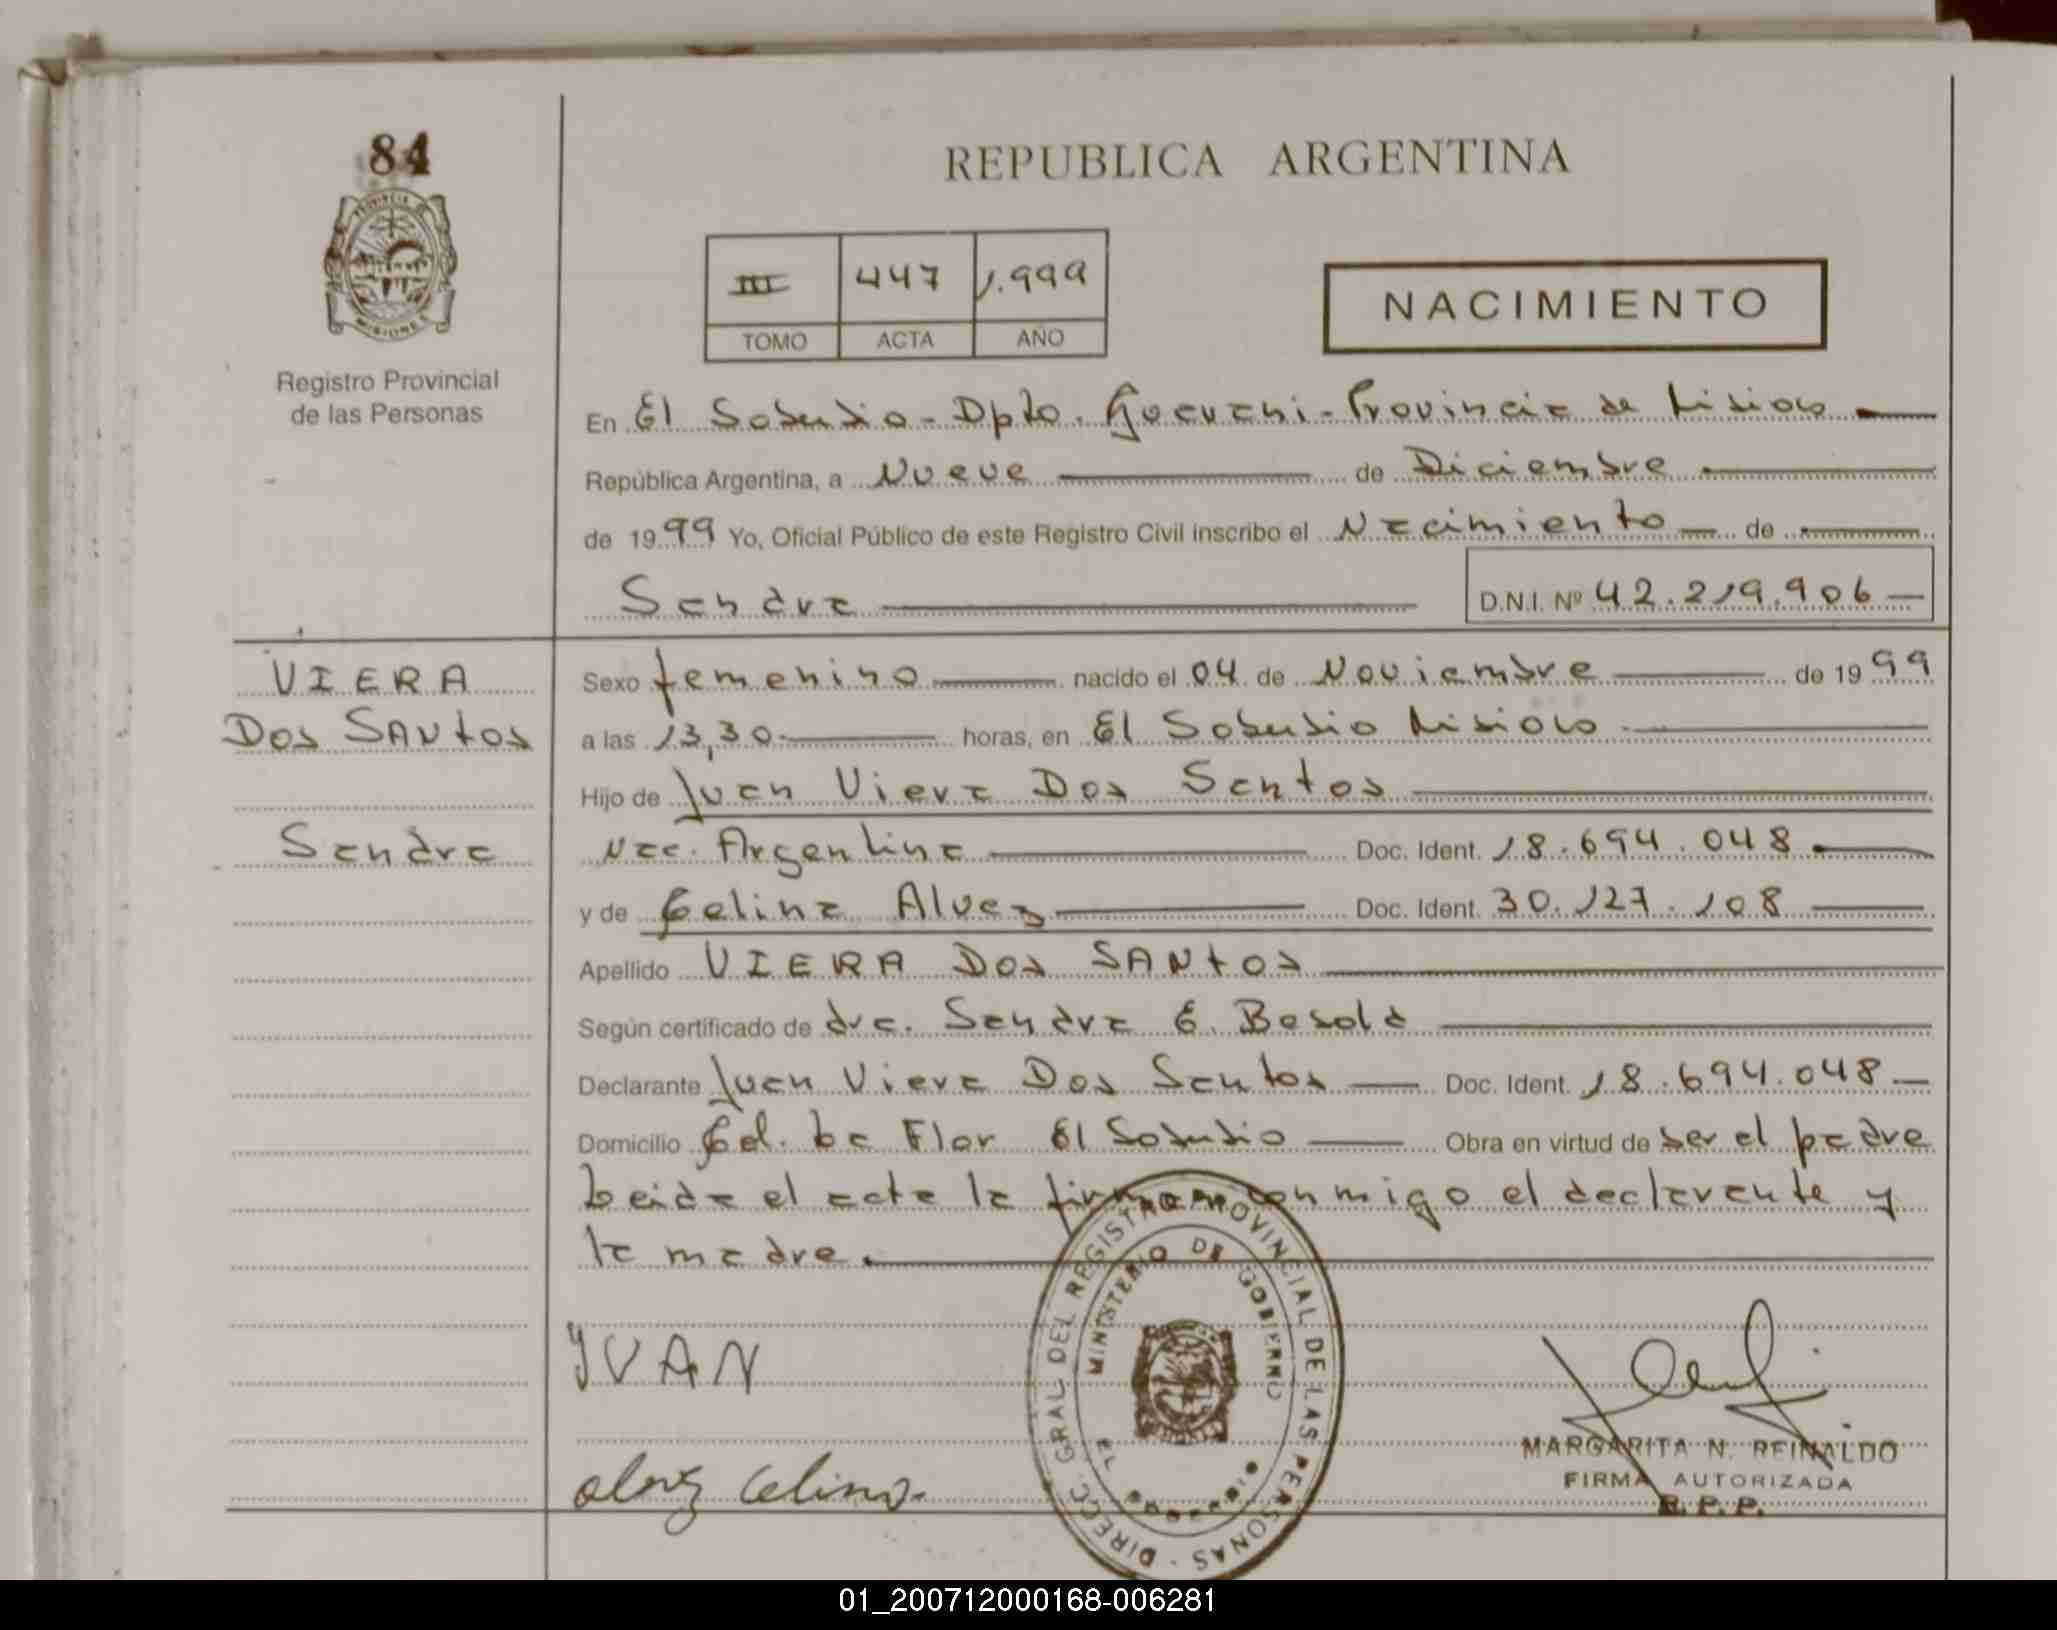 84
PROVINCIA DE
MISIONES
Registro Provincial
de las Personas
REPUBLICA ARGENTINA
III 447 1.999
TOMO ACTA AÑO
NACIMIENTO
En El Soberbio - Dpto. Guarani - Provincia de Misiones
República Argentina, a Nueve de Diciembre
de 1999 Yo, Oficial Público de este Registro Civil inscribo el Nacimiento de
Sandra D.N.I. Nº 42.219.906
VIERA
Dos SANtos
Sandra
Sexo femenino nacido el 04 de Noviembre de 1999
a las 13,30 horas, en El Soberbio Misiones
Hijo de Juan Viera Dos Santos
Nac. Argentina Doc. Ident. 18.694.048
y de Celina Alvez Doc. Ident. 30.127.108
Apellido VIERA Dos SANtos
Según certificado de dra. Sandra E.
Declarante Juan Viera Dos Santos Doc. Ident. 18.694.048
Domicilio Col. La Flor El Soberbio Obra en virtud de ser el padre
Leida el acta la firman conmigo el declarante y
la madre.
JVAN
alvez Celina.
DIRECC. GRAL. DEL REGISTRO PROVINCIAL DE LAS PERSONAS
MINISTERIO DE GOBIERNO
EL SOBERBIO
MARGARITA N. REINALDO
FIRMA AUTORIZADA
R.P.P.
01_200712000168-006281